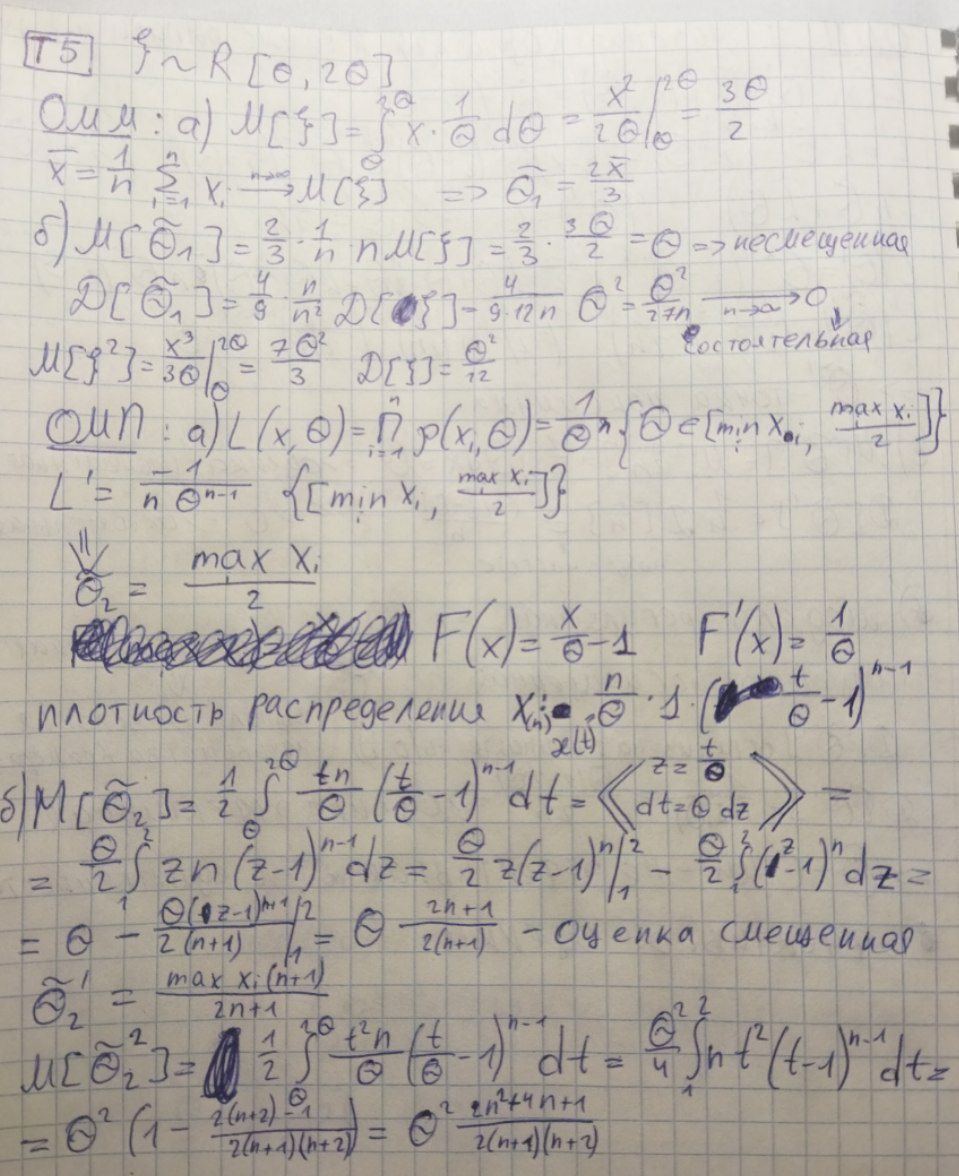 T5 ξ ~ R[θ, 2θ]
ОММ: а) M[ξ] = ∫_θ^{2θ} x · 1/θ dθ = x²/2θ |_θ^{2θ} = 3θ/2
x̄ = 1/n Σ_{i=1}^n x_i →(n→∞) M[ξ] => θ̃₁ = 2x̄/3
б) M[θ̃₁] = 2/3 · 1/n · n M[ξ] = 2/3 · 3θ/2 = θ => несмещенная
D[θ̃₁] = 4/9 · n/n² D[ξ] = 4/(9·12n) θ² = θ²/27n →(n→∞) 0
состоятельная
M[ξ²] = x³/3θ |_θ^{2θ} = 7θ²/3 D[ξ] = θ²/12
ОМП: а) L(x, θ) = Π_{i=1}^n p(x_i, θ) = 1/θⁿ {θ ∈ [min x_i, max x_i/2]}
L' = -1/(n θ^{n-1}) {[min x_i, max x_i/2]}
⇓
θ̃₂ = max x_i/2
F(x) = x/θ - 1 F'(x) = 1/θ
плотность распределения x_(n): n/θ · 1 · (t/θ - 1)^{n-1}
x(t)
б) M[θ̃₂] = 1/2 ∫_θ^{2θ} tn/θ (t/θ - 1)^{n-1} dt = << z = t/θ dt = θ dz >> =
= θ/2 ∫_1^2 zn (z-1)^{n-1} dz = θ/2 z(z-1)ⁿ |_1^2 - θ/2 ∫_1^2 (z-1)ⁿ dz =
= θ - θ(z-1)^{n+1}/2(n+1) |_1^2 = θ (2n+1)/2(n+1) - оценка смещенная
θ̃₂' = max x_i (n+1)/(2n+1)
M[θ̃₂²] = 1/2 ∫_θ^{2θ} t²n/θ (t/θ - 1)^{n-1} dt = θ²/4 ∫_1^2 n t² (t-1)^{n-1} dt =
= θ² (1 - (2(n+2)-1)/(2(n+1)(n+2))) = θ² (2n²+4n+1)/(2(n+1)(n+2))